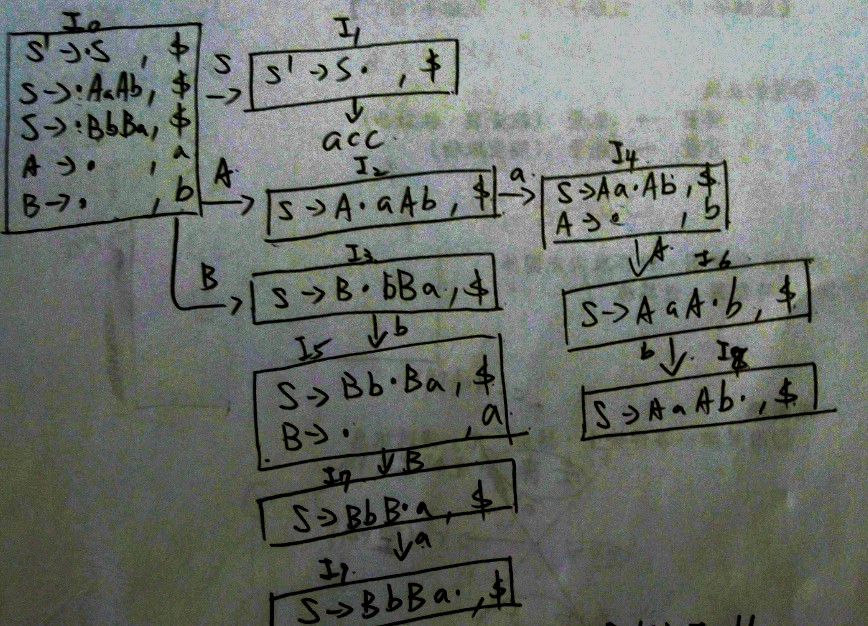 I0
S' → ·S , $
S → ·AaAb, $
S → ·BbBa, $
A → · , a
B → · , b
S
→
I1
S' → S· , $
↓
acc
A
→
I2
S → A·aAb, $
a
→
I4
S → Aa·Ab, $
A → · , b
↓ A
I6
S → AaA·b, $
b ↓
I8
S → AaAb·, $
B
→
I3
S → B·bBa, $
↓ b
I5
S → Bb·Ba, $
B → · , a
↓ B
I7
S → BbB·a, $
↓ a
I9
S → BbBa·, $